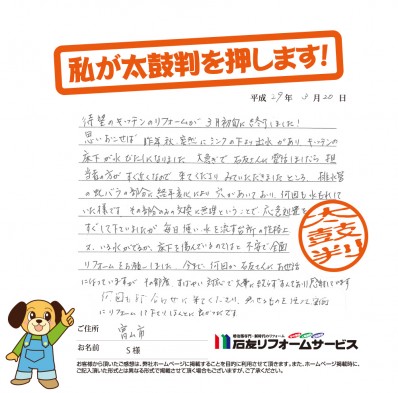 私が太鼓判を押します!
平成 29年 3月 20日
待望のキッチンのリフォームが3月初旬に終りました!
思いおこせば 昨年秋 突然にシンクの下より出水があり、キッチンの
床下が水びたしになりました 大急ぎで 石友さんに電話しましたら 担
当者の方が すぐ近くなので 来てくださり みていただきましたところ、排水管
の蛇バラの部分に経年劣化により穴があいており、何回も水もれして
いた様です その部分のみの交換は無理ということで 応急処置を
すぐして下さいましたが 毎日使い 水を流す台所の性格上
は、いろんがでるか、床下を傷んでいるのではと 不安で全面
リフォームをお願いしました 今までに 何回か石友さんにお世話
になっていますが その都度、すばやい対応で
何回も打ち合わせに来てくださり
にリフォームして下さりほんとに
太鼓判
ご住所 富山市
お名前 S様
増改築専門・新時代のリフォーム
石友リフォームサービス
お客様から頂いたご感想は、弊社ホームページに掲載することを目的に利用させて頂きます。また、ホームページ掲載時に、
ご記入頂いた形式とは異なる形式で掲載させて頂く場合もございますが、ご了承ください。